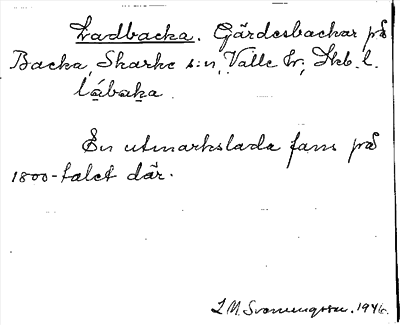 Ladbacka. Gärdesbackar på
Backa, Skarke s:n, Valle hr, Skb. l.
lábaka.
En utmarkslada fans på
1800-talet där.
L M. Svenungsson. 1946.